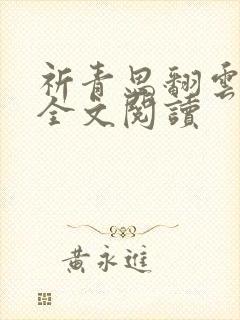 祈青思翻雲
全文閱讀
黃永進